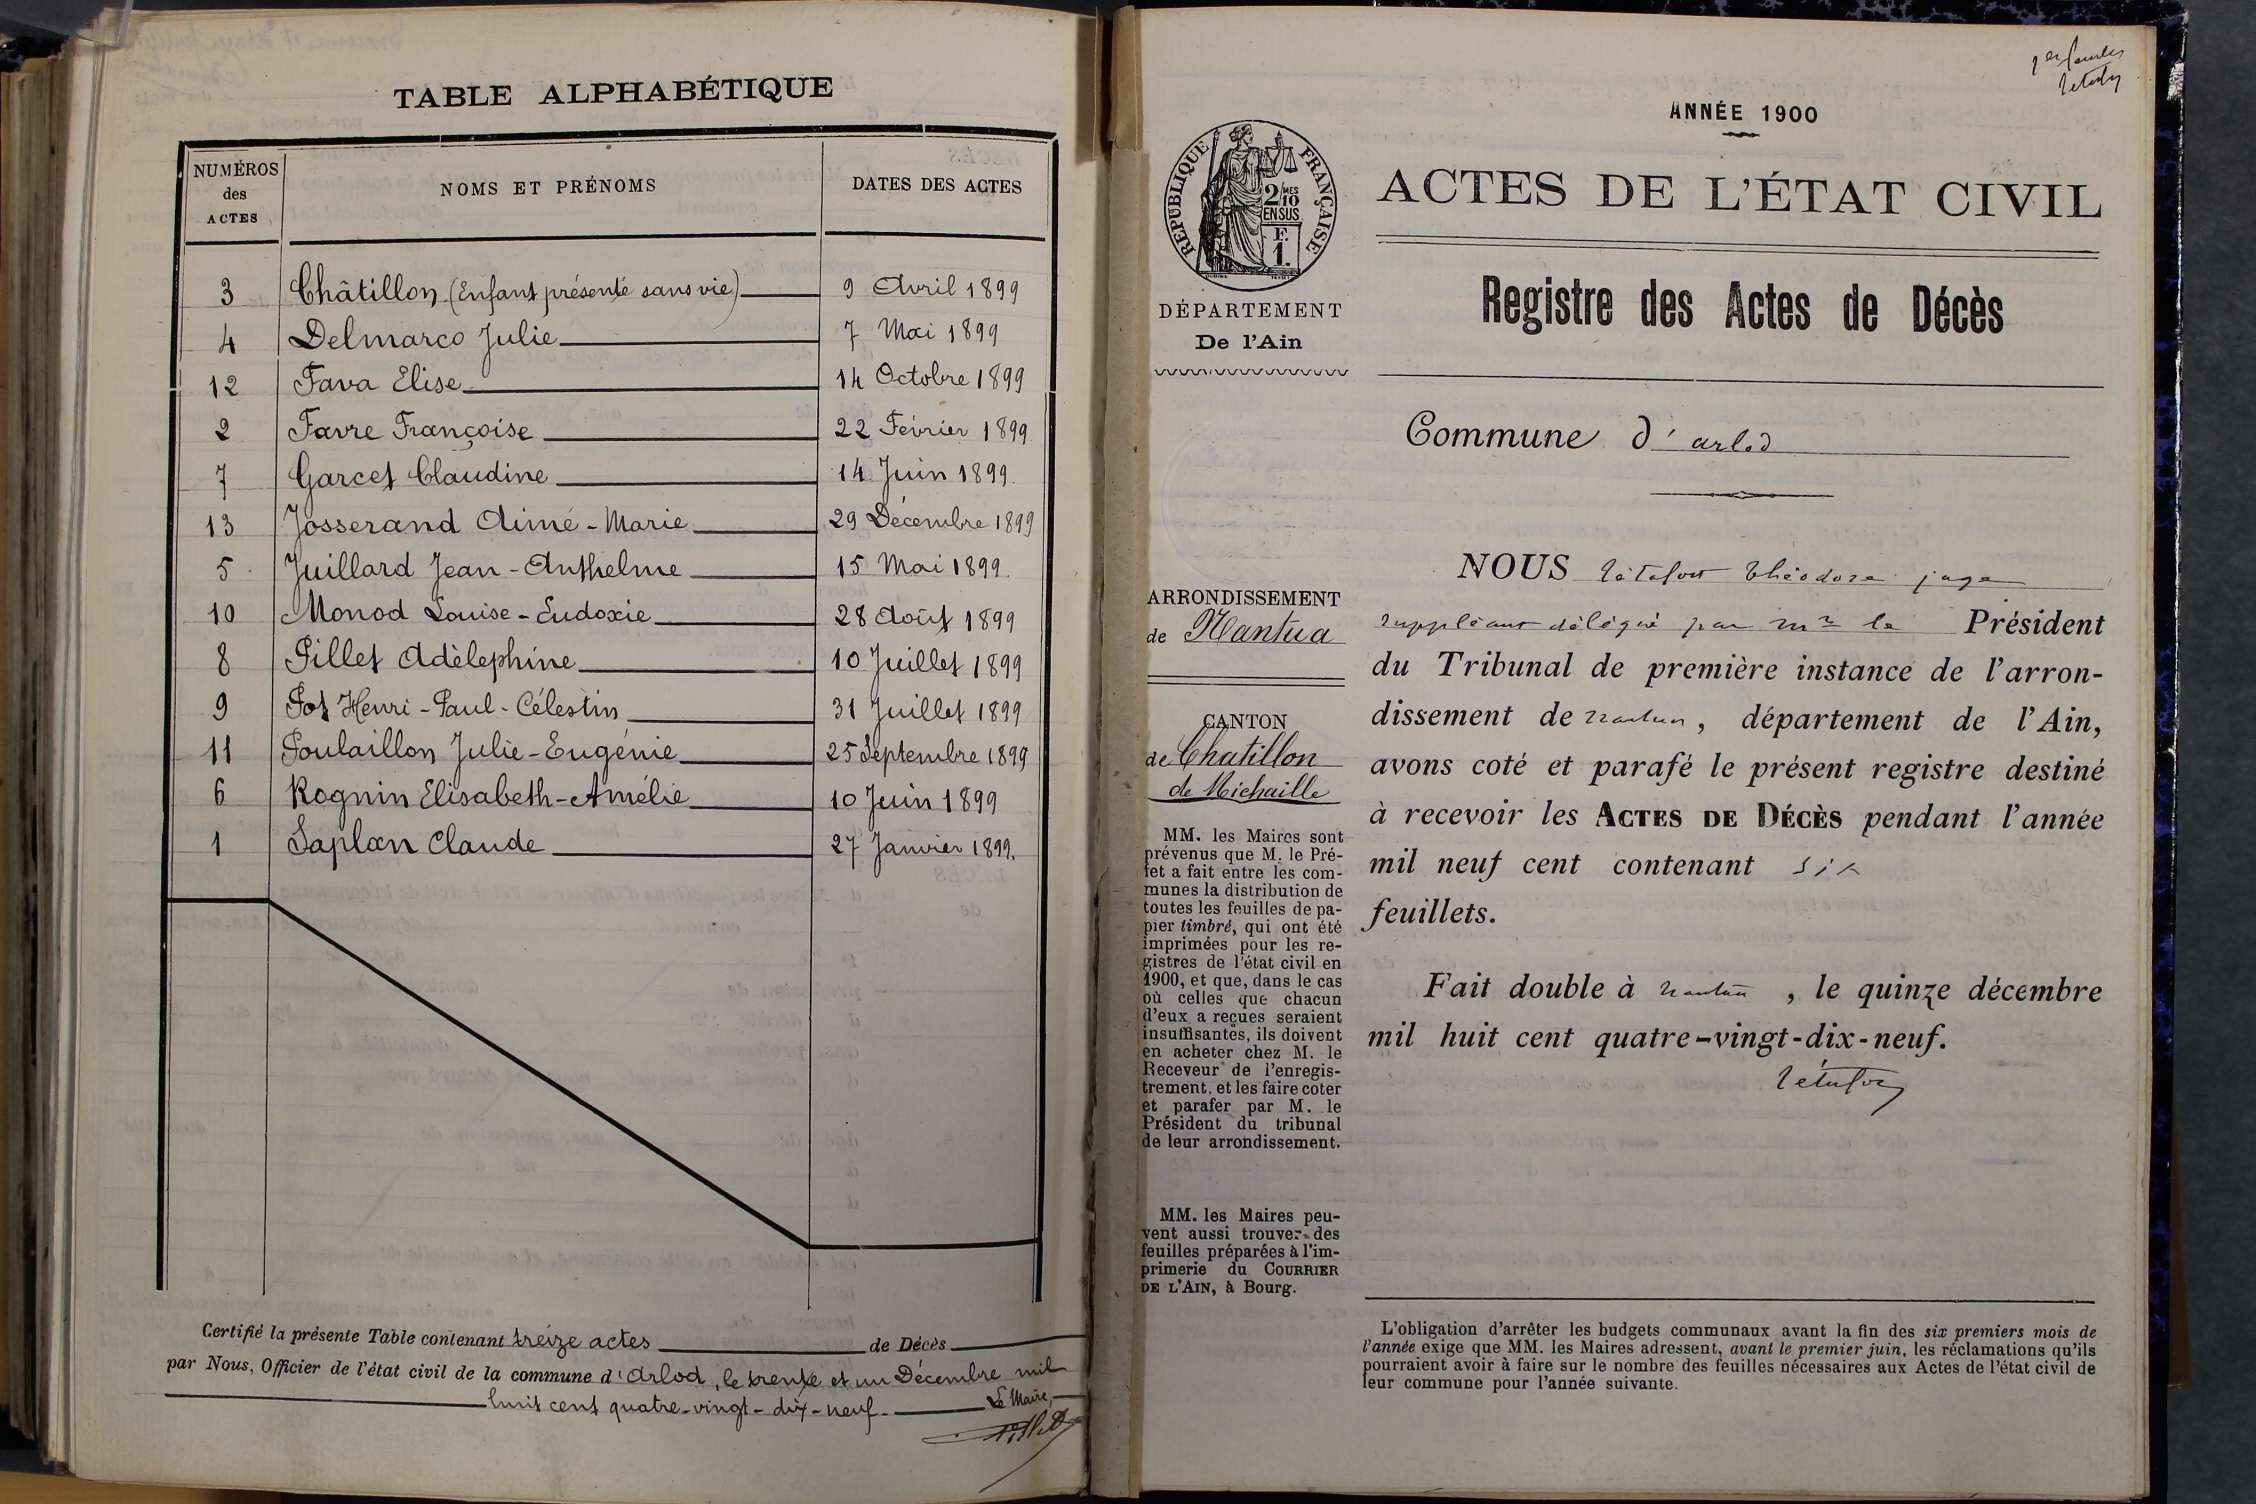 TABLE ALPHABÉTIQUE
NUMÉROS des ACTES
NOMS ET PRÉNOMS
DATES DES ACTES
3 Châtillon (Enfant présenté sans vie) 9 Avril 1899
4 Delmarco Julie 7 Mai 1899
12 Fava Elise 14 Octobre 1899
2 Favre Françoise 22 Février 1899
7 Garcet Claudine 14 Juin 1899.
13 Josserand Aimé-Marie 29 Décembre 1899
5 Juillard Jean-Anthelme 15 Mai 1899.
10 Monod Louise-Eudoxie 28 Août 1899
8 Pillet Adèlephine 10 Juillet 1899
9 Pot Henri-Paul-Célestin 31 Juillet 1899
11 Poulaillon Julie-Eugénie 25 Septembre 1899
6 Rognin Elisabeth-Amélie 10 Juin 1899
1 Saplan Claude 27 Janvier 1899.
Certifié la présente Table contenant treize actes de Décès
par Nous, Officier de l'état civil de la commune d'Arlod, le trente et un Décembre mil
huit cent quatre-vingt-dix-neuf.
Le Maire,
ANNÉE 1900
RÉPUBLIQUE FRANÇAISE
2/10 MES
EN SUS
F.
1.
ACTES DE L'ÉTAT CIVIL
DÉPARTEMENT
De l'Ain
Registre des Actes de Décès
Commune d'arlod
ARRONDISSEMENT
de Nantua
CANTON
de Chatillon
de Michaille
MM. les Maires sont
prévenus que M. le Pré-
fet a fait entre les com-
munes la distribution de
toutes les feuilles de pa-
pier timbré, qui ont été
imprimées pour les re-
gistres de l'état civil en
1900, et que, dans le cas
où celles que chacun
d'eux a reçues seraient
insuffisantes, ils doivent
en acheter chez M. le
Receveur de l'enregis-
trement, et les faire coter
et parafer par M. le
Président du tribunal
de leur arrondissement.
MM. les Maires peu-
vent aussi trouver des
feuilles préparées à l'im-
primerie du COURRIER
DE L'AIN, à Bourg.
NOUS Théodore juge
suppléant délégué par Mr le Président
du Tribunal de première instance de l'arron-
dissement de nantua, département de l'Ain,
avons coté et parafé le présent registre destiné
à recevoir les ACTES DE DÉCÈS pendant l'année
mil neuf cent contenant six
feuillets.
Fait double à nantua, le quinze décembre
mil huit cent quatre-vingt-dix-neuf.
L'obligation d'arrêter les budgets communaux avant la fin des six premiers mois de
l'année exige que MM. les Maires adressent, avant le premier juin, les réclamations qu'ils
pourraient avoir à faire sur le nombre des feuilles nécessaires aux Actes de l'état civil de
leur commune pour l'année suivante.